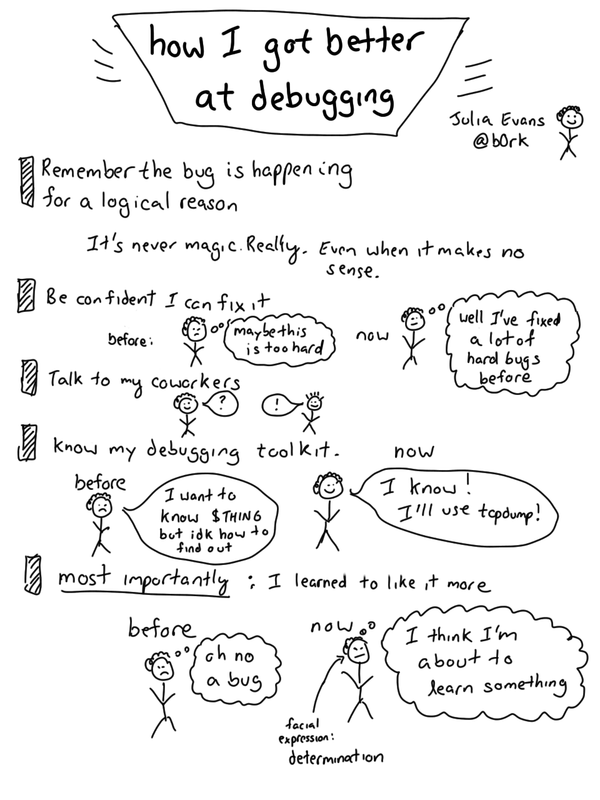 how I got better
at debugging
Julia Evans
@b0rk
Remember the bug is happening
for a logical reason
It's never magic. Really. Even when it makes no
sense.
Be confident I can fix it
before:
maybe this
is too hard
now
well I've fixed
a lot of
hard bugs
before
Talk to my coworkers
?
!
know my debugging toolkit.
before
I want to
know $THING
but idk how to
find out
now
I know!
I'll use tcpdump!
most importantly : I learned to like it more
before
oh no
a bug
now
I think I'm
about to
learn something
facial
expression:
determination